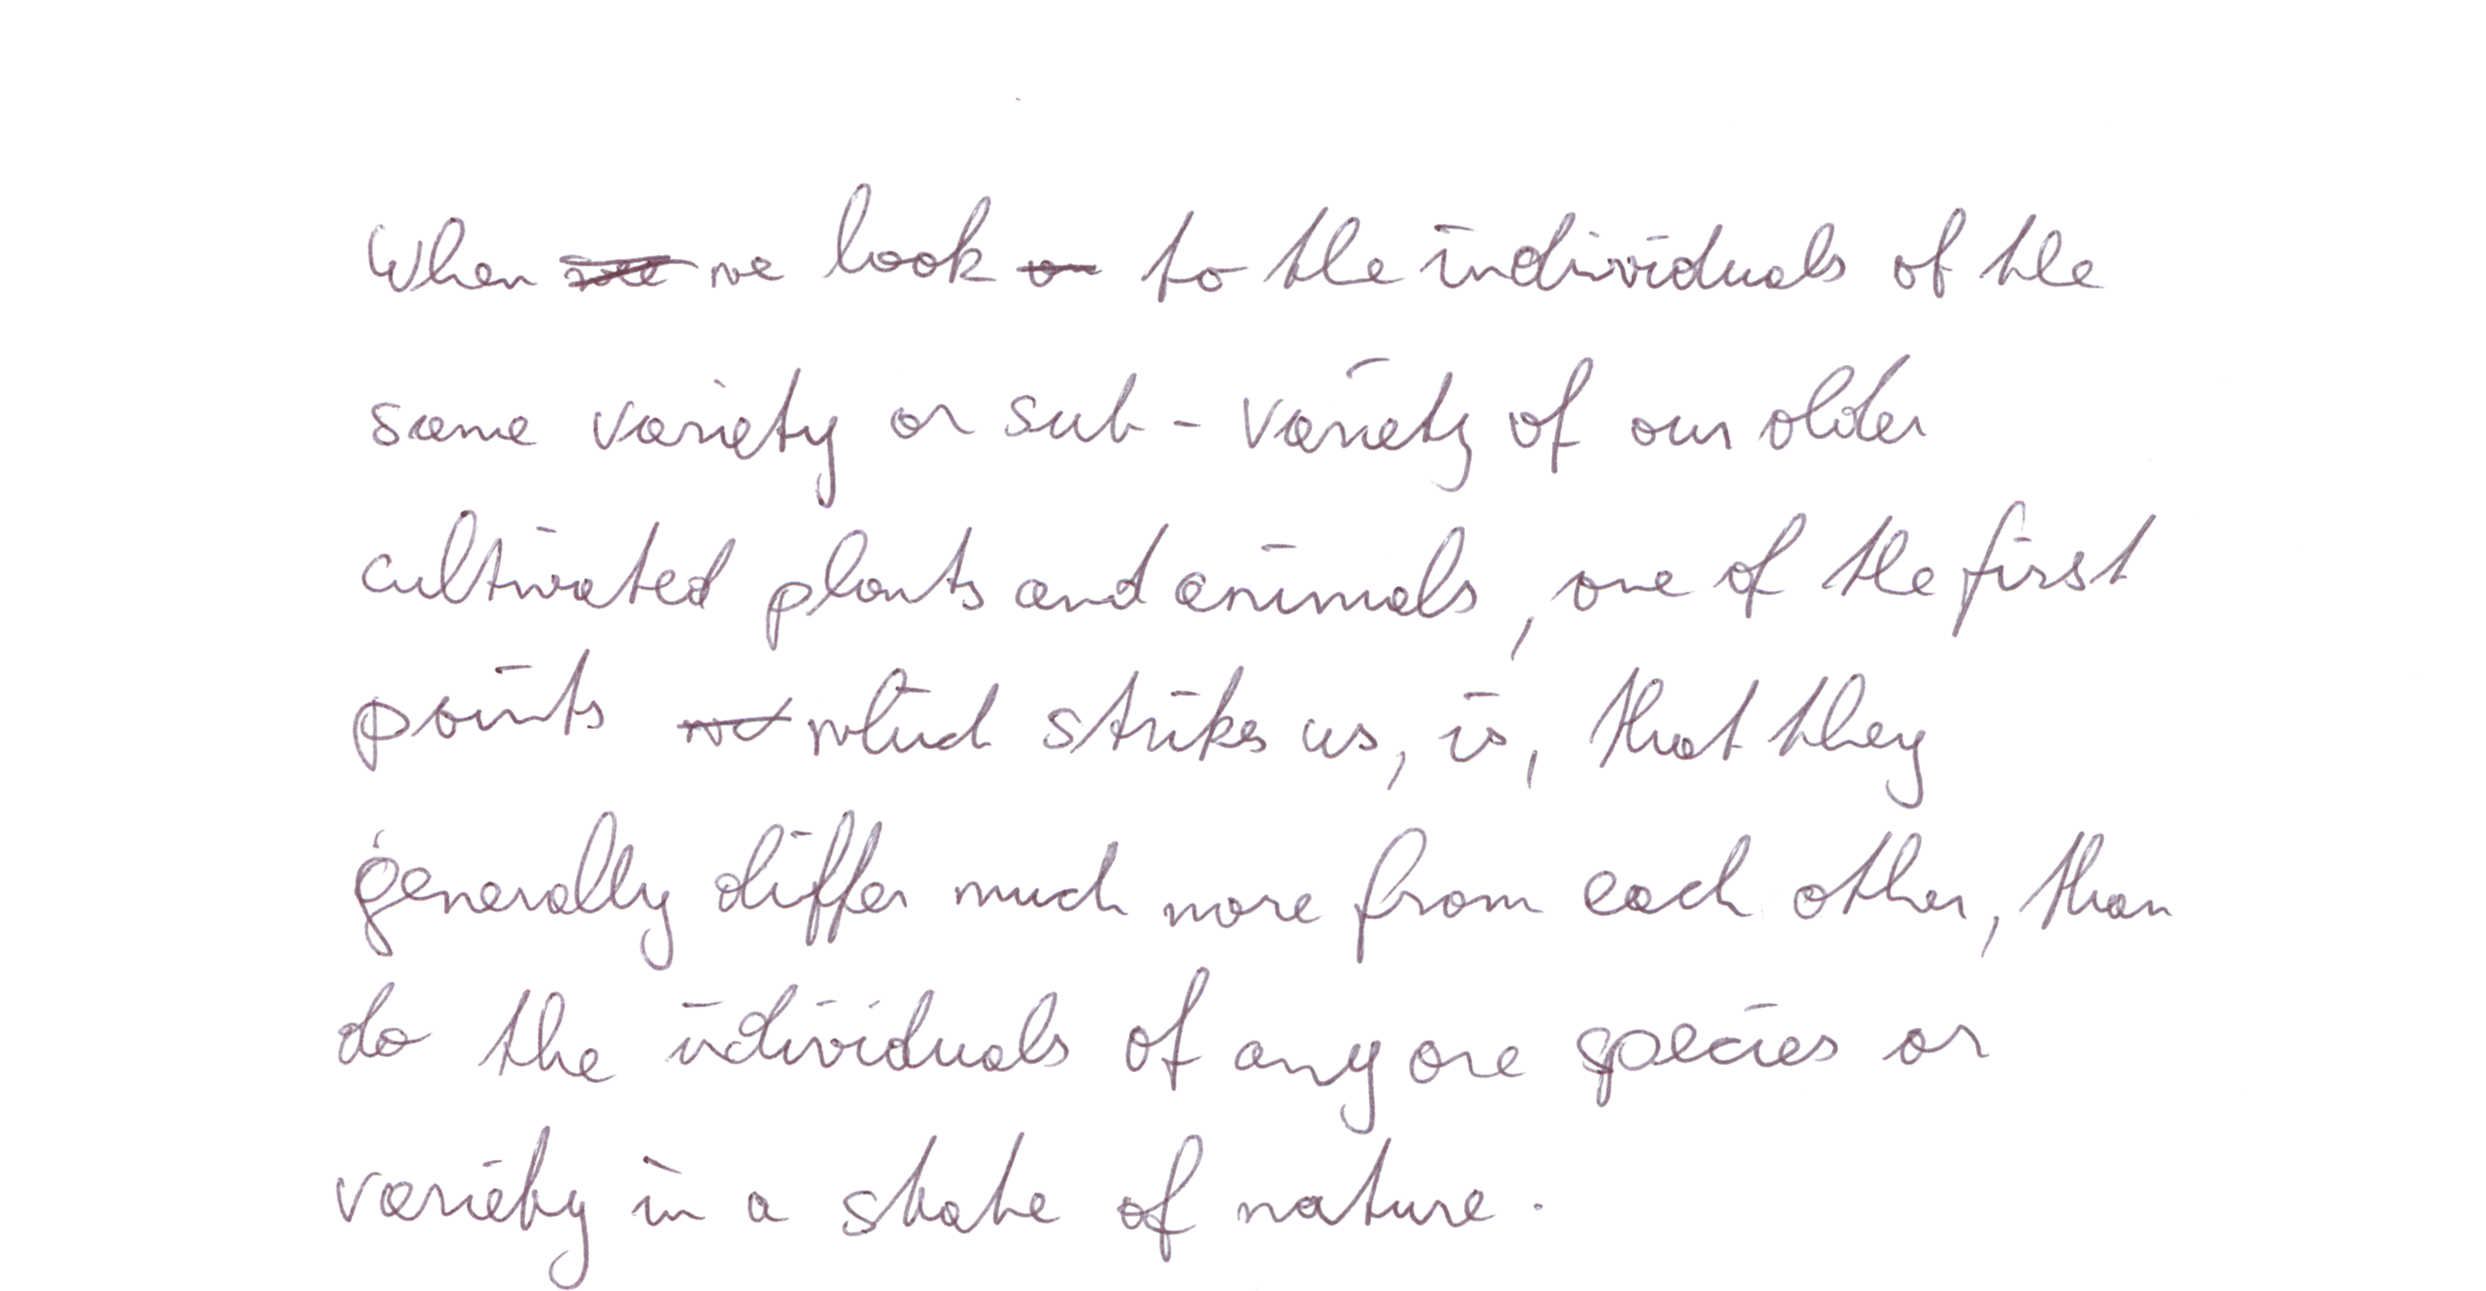 When we look to the individuals of the
same variety or sub-variety of our older
cultivated plants and animals, one of the first
points which strikes us, is, that they
generally differ much more from each other, than
do the individuals of any one species or
variety in a state of nature.